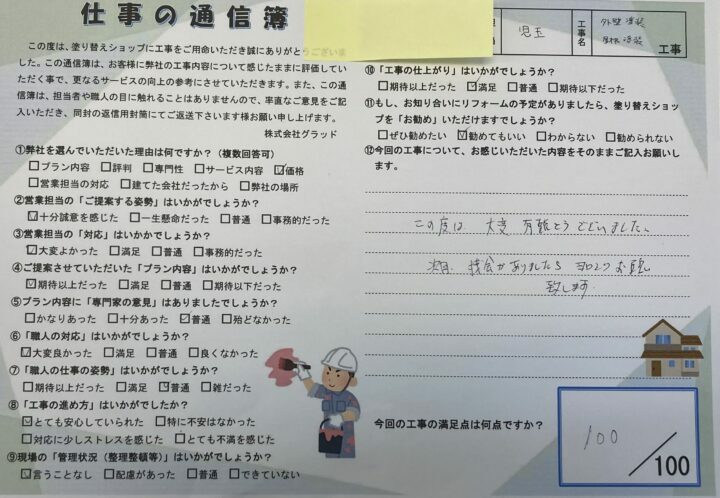 仕事の通信簿
児玉
工事名
外壁塗装
屋根塗装
工事
この度は、塗り替えショップに工事をご用命いただき誠にありがとうございま
した。この通信簿は、お客様に弊社の工事内容について感じたままに評価してい
ただく事で、更なるサービスの向上の参考にさせていただきます。また、この通
信簿は、担当者や職人の目に触れることはありませんので、率直なご意見をご記
入いただき、同封の返信用封筒にてご返送下さいます様お願い申し上げます。
株式会社グラッド
①弊社を選んでいただいた理由は何ですか？（複数回答可）
□プラン内容 □評判 □専門性 □サービス内容 ☑価格
□営業担当の対応 □建てた会社だったから □弊社の場所
②営業担当の「ご提案する姿勢」はいかがでしょうか？
☑十分誠意を感じた □一生懸命だった □普通 □事務的だった
③営業担当の「対応」はいかかでしょうか？
☑大変よかった □満足 □普通 □事務的だった
④ご提案させていただいた「プラン内容」はいかがでしょうか？
☑期待以上だった □満足 □普通 □期待以下だった
⑤プラン内容に「専門家の意見」はありましたでしょうか？
□かなりあった □十分あった ☑普通 □殆どなかった
⑥「職人の対応」はいかがでしょうか？
☑大変良かった □満足 □普通 □良くなかった
⑦「職人の仕事の姿勢」はいかがでしょうか？
□期待以上だった □満足 ☑普通 □雑だった
⑧「工事の進め方」はいかがでしたか？
☑とても安心していられた □特に不安はなかった
□対応に少しストレスを感じた □とても不満を感じた
⑨現場の「管理状況（整理整頓等）」はいかがでしょうか？
☑言うことなし □配慮があった □普通 □できていない
⑩「工事の仕上がり」はいかがでしょうか？
□期待以上だった ☑満足 □普通 □期待以下だった
⑪もし、お知り合いにリフォームの予定がありましたら、塗り替えショッ
プを「お勧め」いただけますでしょうか？
□ぜひ勧めたい ☑勧めてもいい □わからない □勧められない
⑫今回の工事について、お感じいただいた内容をそのままご記入お願いし
ます。
この度は 大変 有難とうございました。
機会がありましたら ヨロシクお願い
致します
今回の工事の満足点は何点ですか？
100
/100